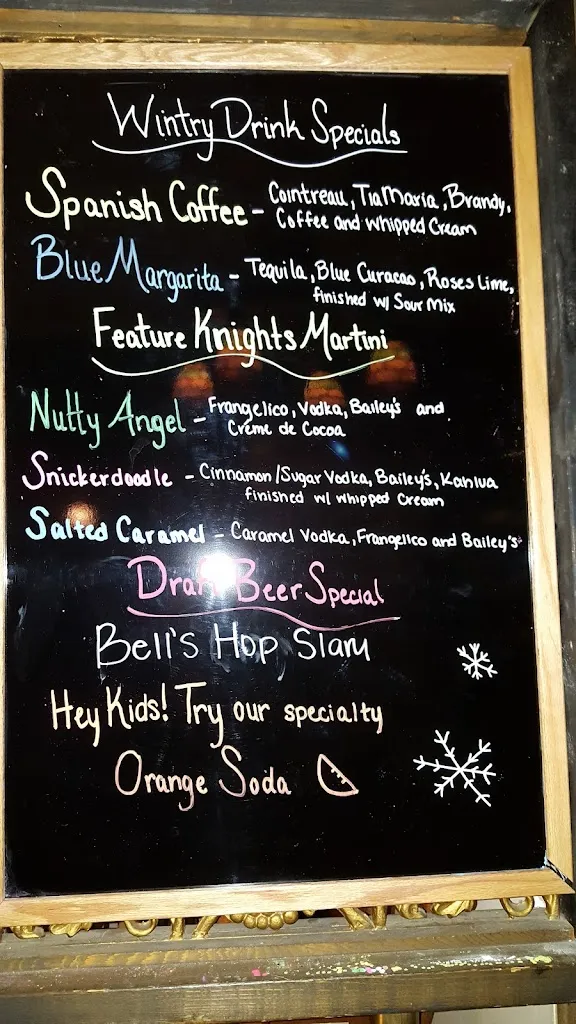 Wintry Drink Specials
Spanish Coffee - Cointreau, Tia Maria, Brandy,
Coffee and whipped Cream
Blue Margarita - Tequila, Blue Curacao, Roses Lime,
finished w/ Sour Mix
Feature Knights Martini
Nutty Angel - Frangelico, Vodka, Bailey's and
Créme de Cocoa
Snickerdoodle - Cinnamon/Sugar Vodka, Bailey's, Kahlua
finished w/ whipped Cream
Salted Caramel - Caramel Vodka, Frangelico and Bailey's
Draft Beer Special
Bell's Hop Slam
Hey Kids! Try our specialty
Orange Soda